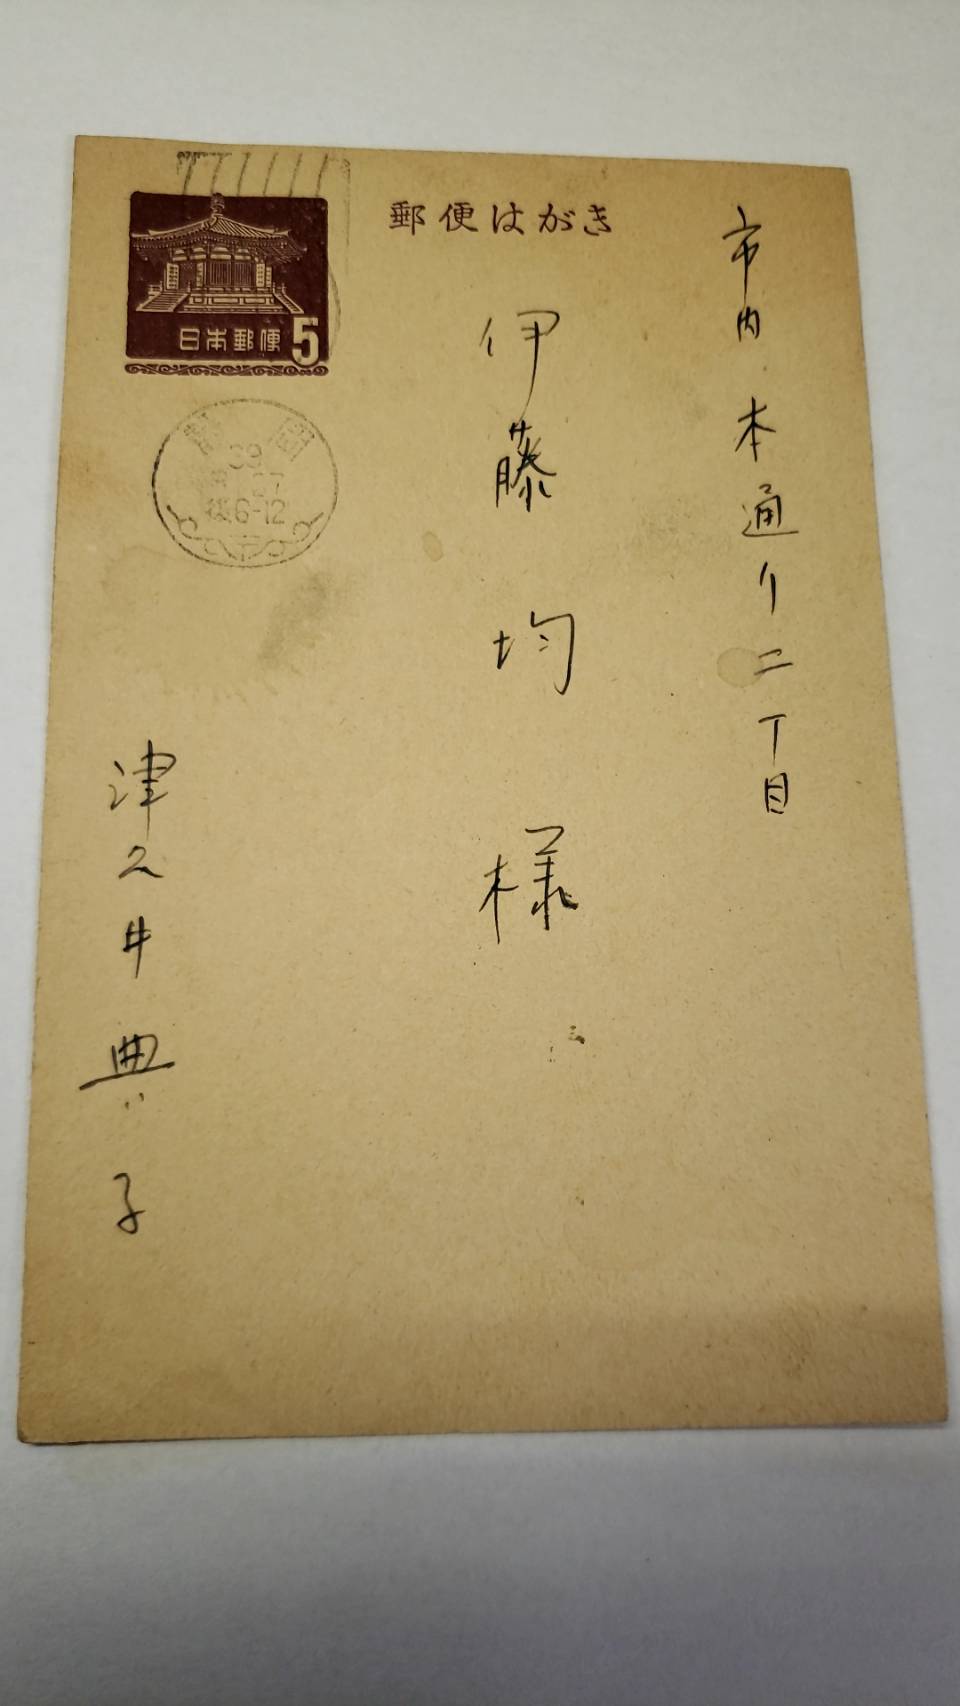 郵便はがき
日本郵便 5
静岡
39
27
後6-12
市内 本通り二丁目
伊藤 均 様
津久井 典子